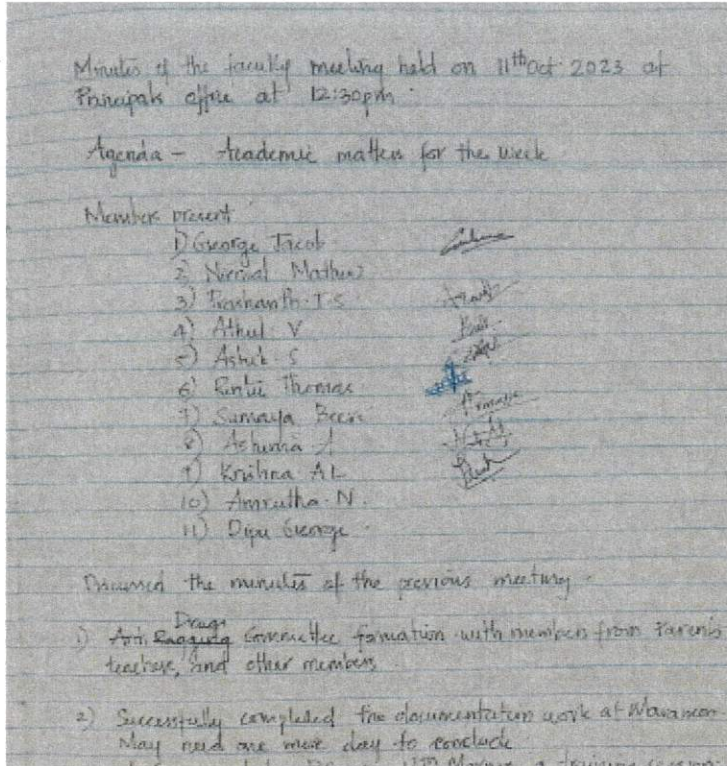 Minutes of the faculty meeting held on 11th Oct 2023 at
Principals office at 12:30pm.
Agenda - Academic matters for the week
Members present
1) George Jacob
2) Nirmal Mathew
3) Prashanth. T. S
4) Athul V
5) Ashik S
6) Thomas
7) Sumaya
8) Ashima A
9) Krishna A L
10) Amrutha N.
11) Dipu George.
Discussed the minutes of the previous meeting.
Drugs
1) Anti Ragging Committee formation with members from Parents
teachers, and other members.
2) Successfully completed the documentation work at
May need one more day to conclude